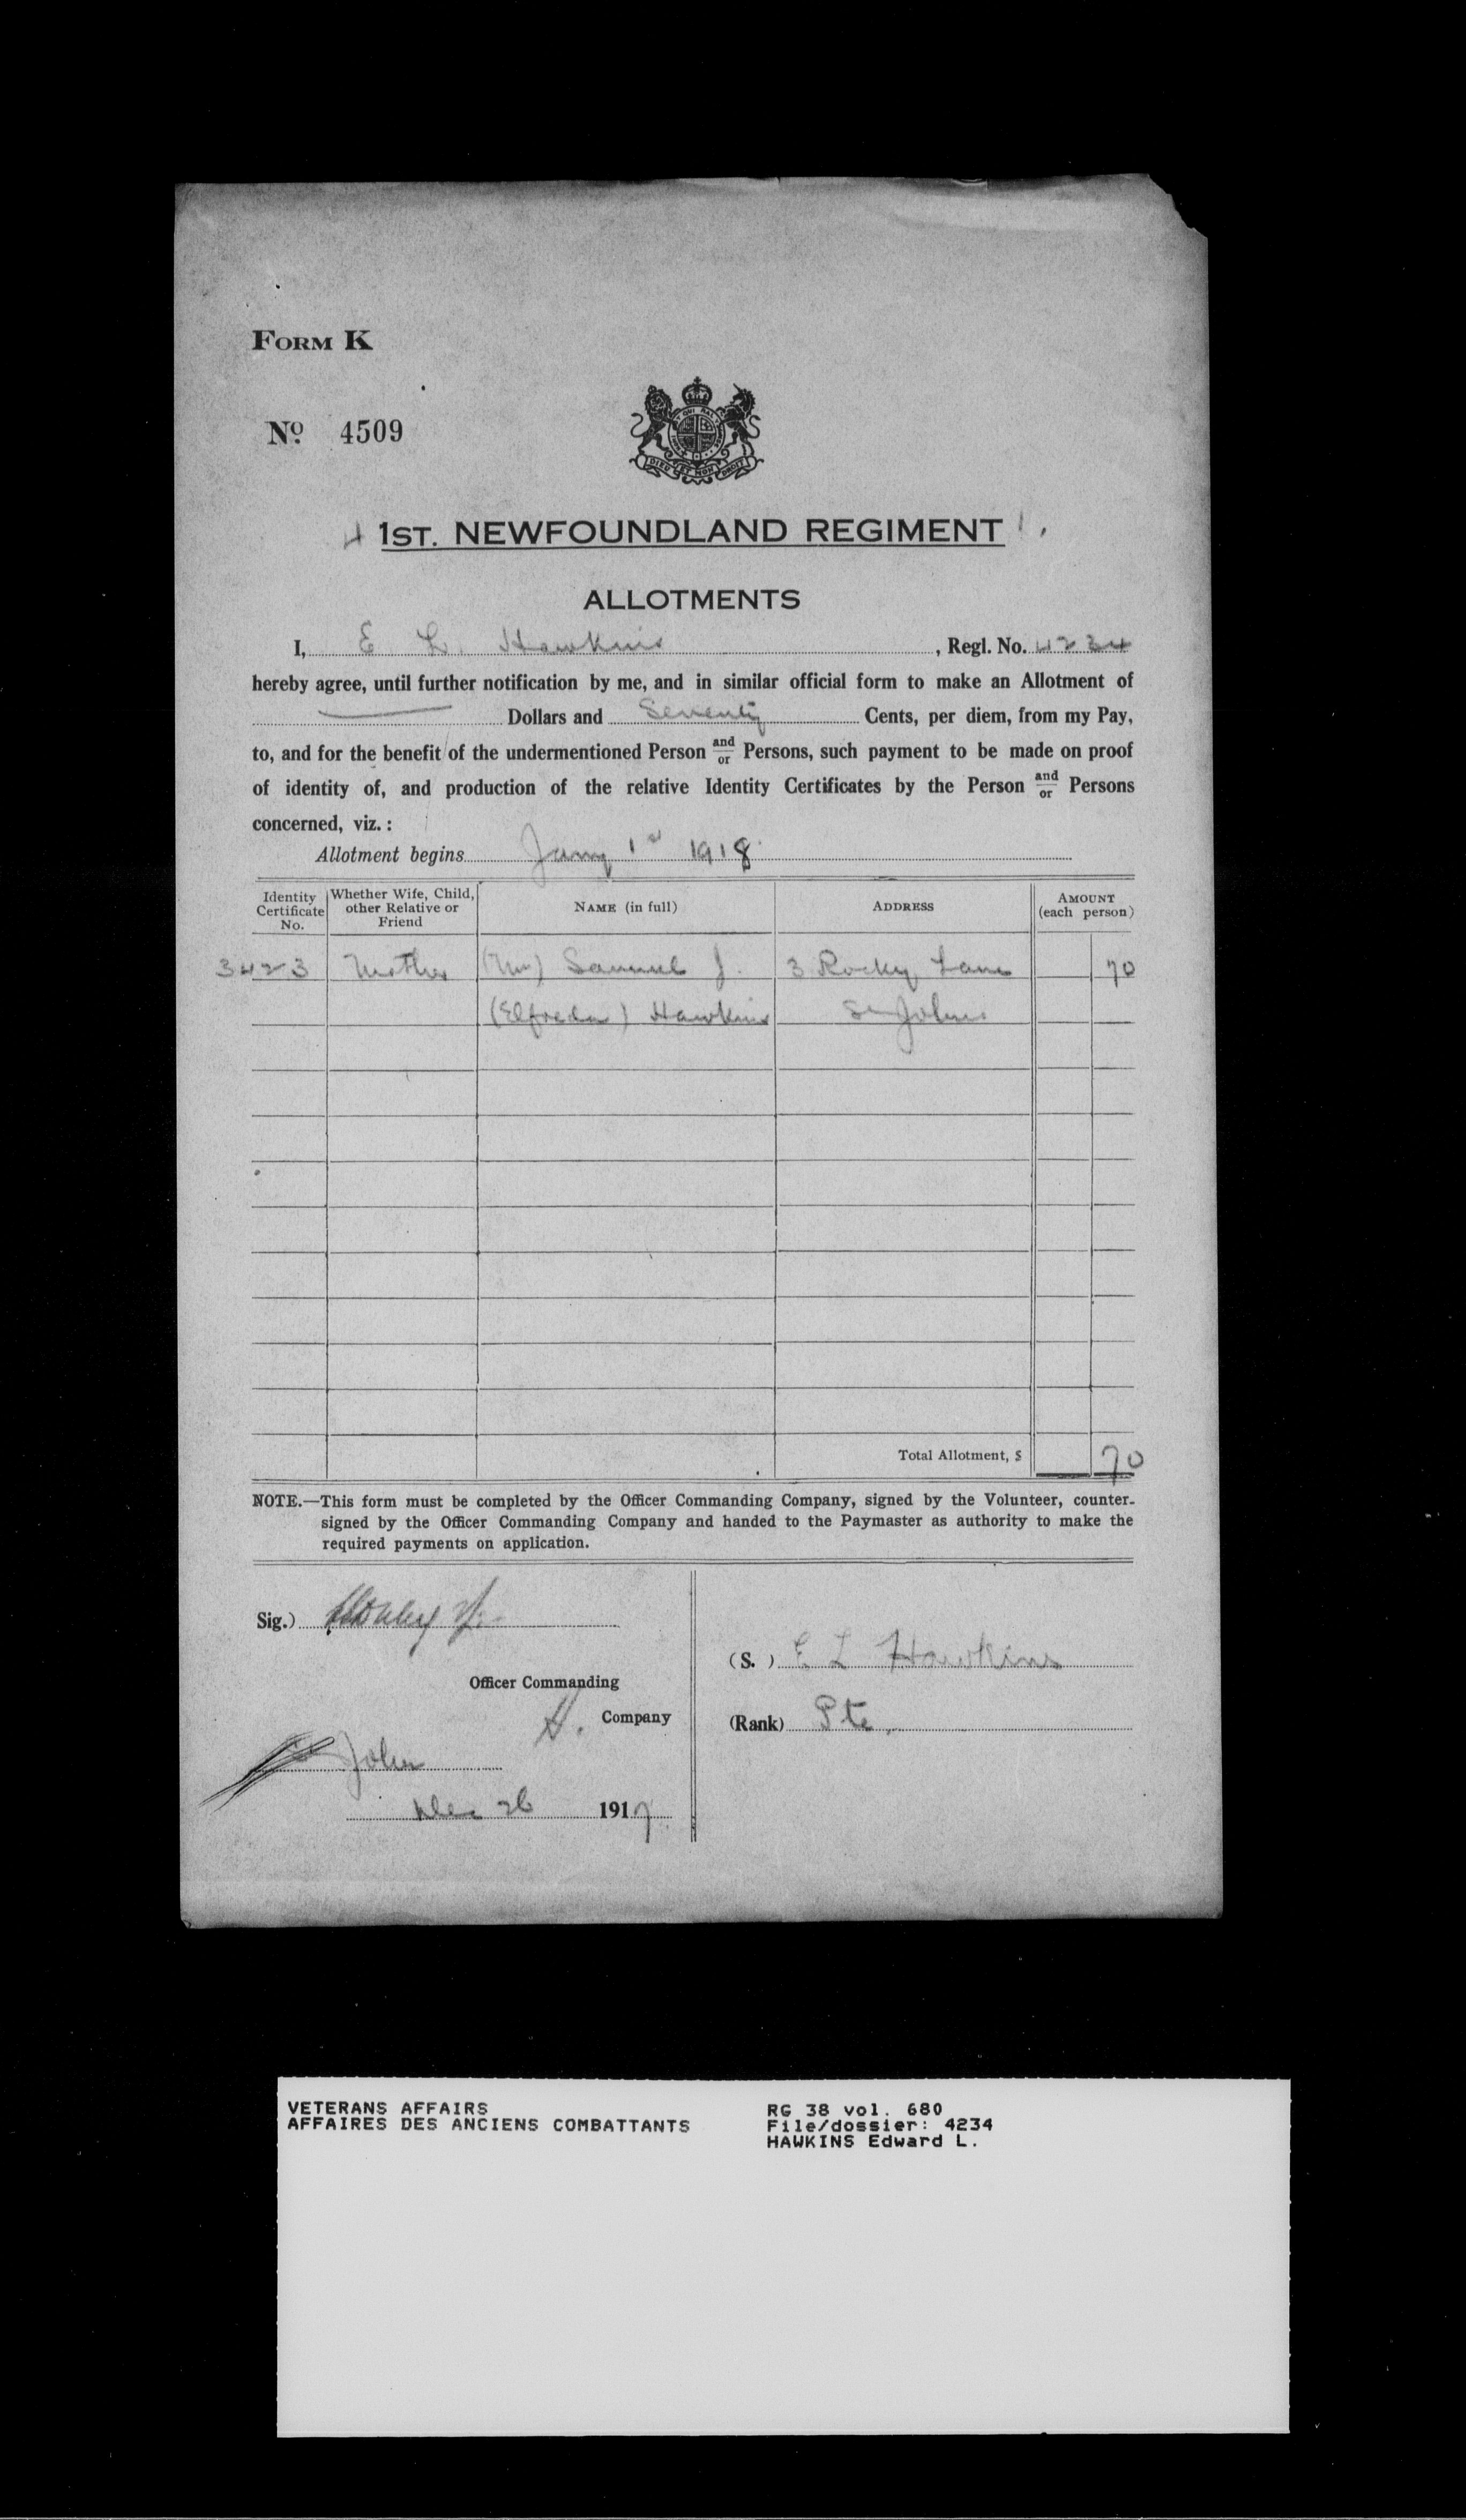 FORM K
No. 4509
DIEU ET MON DROIT
1ST. NEWFOUNDLAND REGIMENT
ALLOTMENTS
I, E L. Hawkins, Regl. No. 4234
hereby agree, until further notification by me, and in similar official form to make an Allotment of
Dollars and Seventy Cents, per diem, from my Pay,
to, and for the benefit of the undermentioned Person and/or Persons, such payment to be made on proof
of identity of, and production of the relative Identity Certificates by the Person and/or Persons
concerned, viz.:
Allotment begins Jany 1st 1918
Identity Certificate No. Whether Wife, Child, other Relative or Friend NAME (in full) ADDRESS AMOUNT (each person)
3423 Mother (Mrs) Samuel J. 3 Rocky Lane 70
(Elfreda) Hawkins St Johns
Total Allotment, $ 70
NOTE.—This form must be completed by the Officer Commanding Company, signed by the Volunteer, counter-
signed by the Officer Commanding Company and handed to the Paymaster as authority to make the
required payments on application.
Sig.)
Officer Commanding
H. Company
St John
Dec 26 1917
(S. ) E L Hawkins
(Rank) Pte.
VETERANS AFFAIRS RG 38 vol. 680
AFFAIRES DES ANCIENS COMBATTANTS File/dossier: 4234
HAWKINS Edward L.